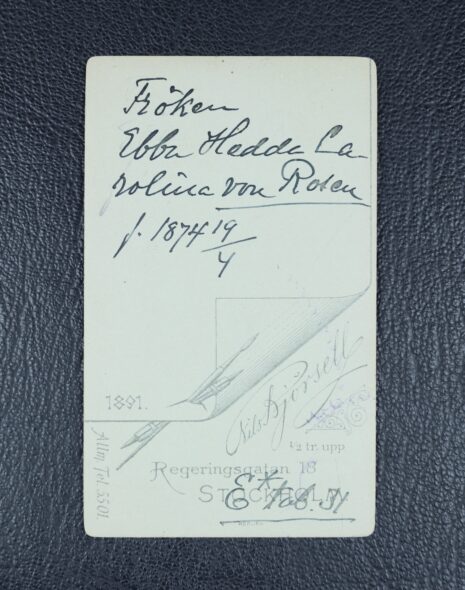 Fröken
Ebba Hedda Ca-
rolina von Rosen
f. 1874 19/4
1891.
Nils Kjörsell
½ tr. upp
Regeringsgatan 18
STOCKHOLM
Allm Tel. 5501